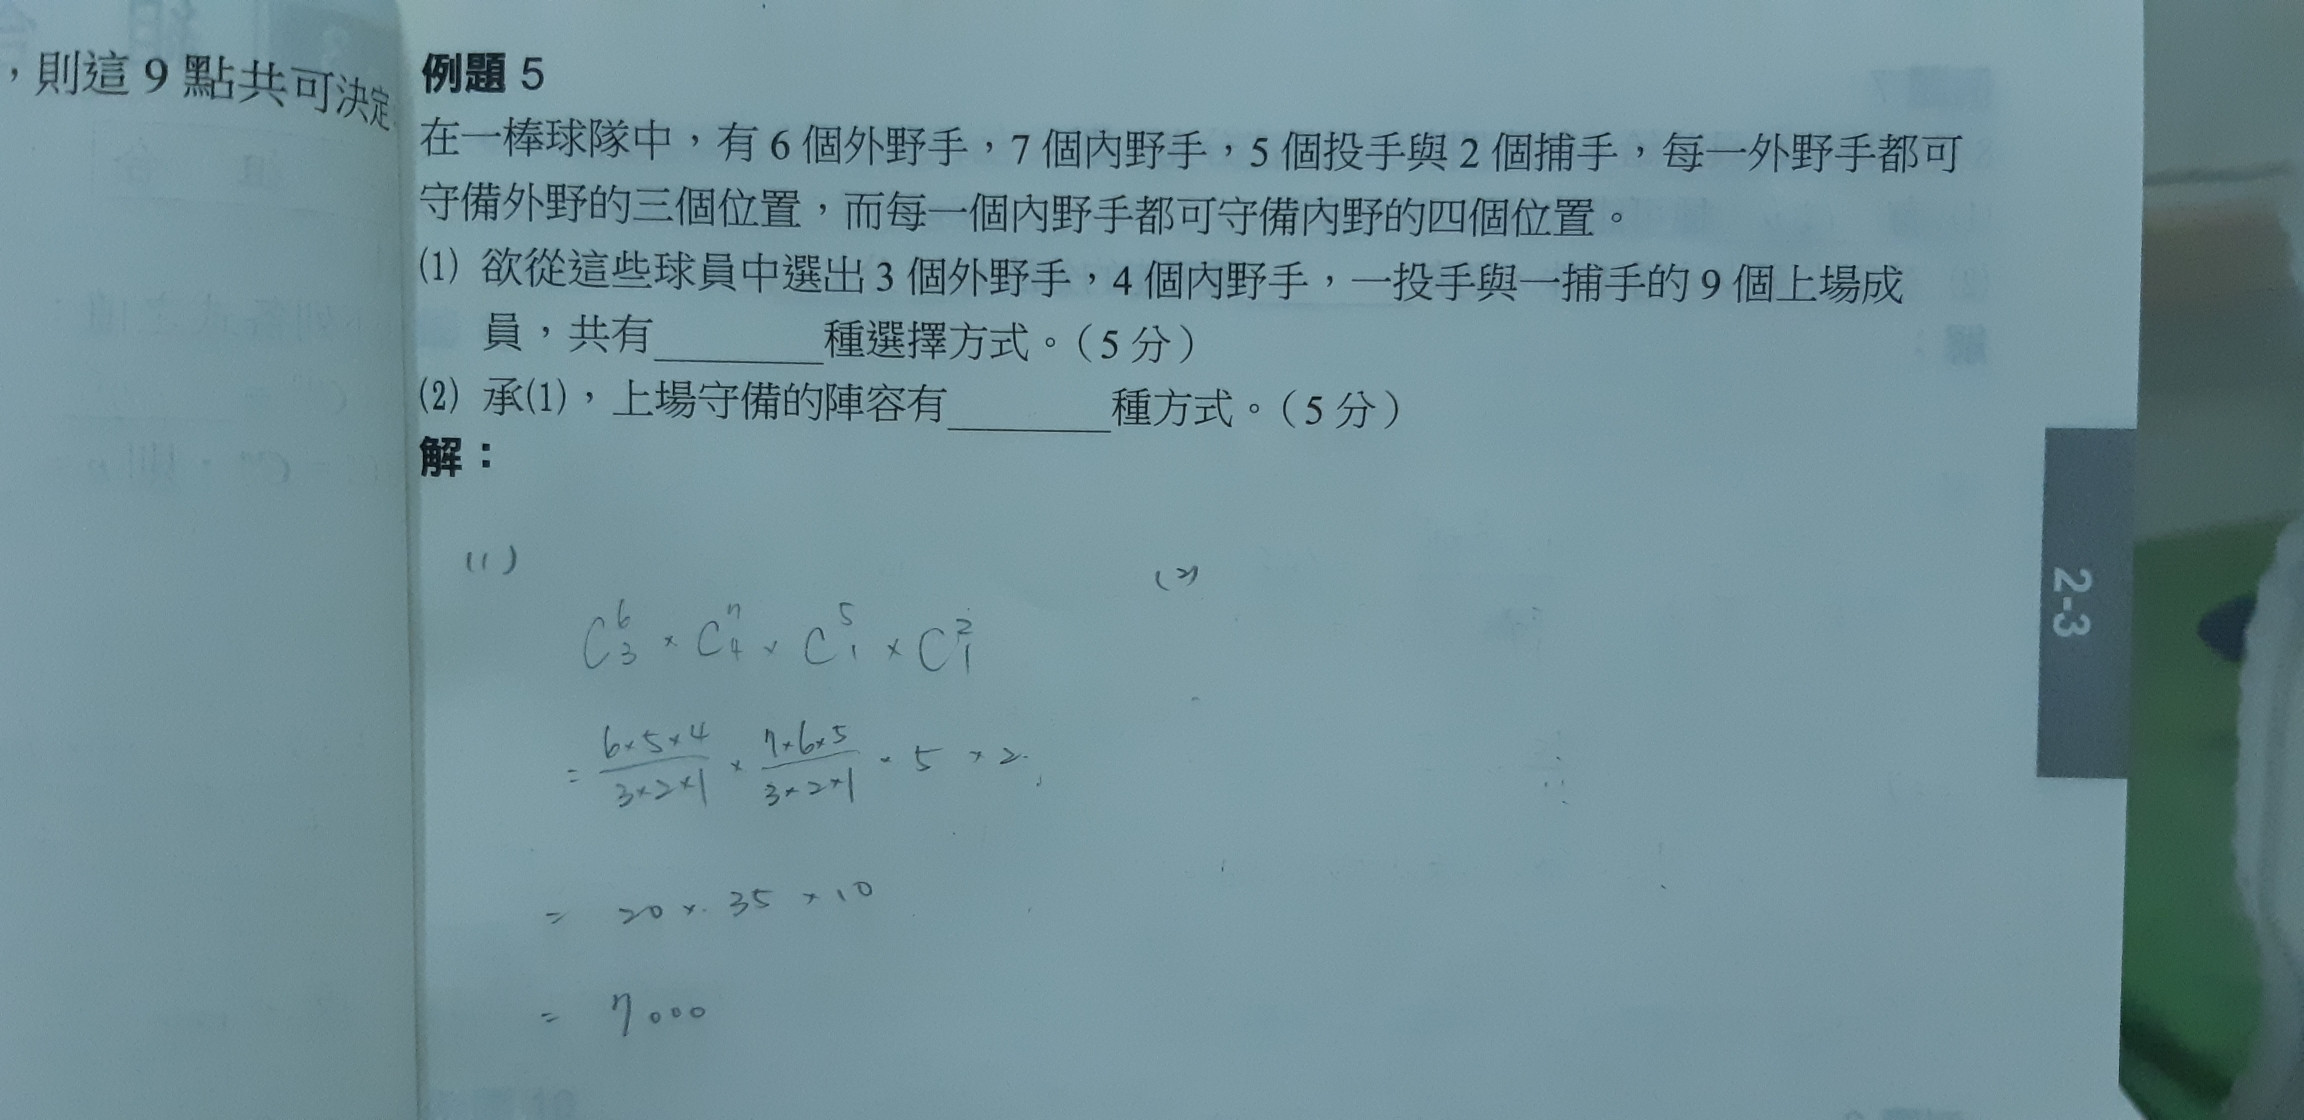 ，則這 9 點共可決定
例題 5
在一棒球隊中，有 6 個外野手，7 個內野手，5 個投手與 2 個捕手，每一外野手都可
守備外野的三個位置，而每一個內野手都可守備內野的四個位置。
(1) 欲從這些球員中選出 3 個外野手，4 個內野手，一投手與一捕手的 9 個上場成
員，共有______種選擇方式。（5 分）
(2) 承(1)，上場守備的陣容有______種方式。（5 分）
解：
(1)
(2)
C⁶₃ × C⁷₄ × C⁵₁ × C²₁
= 6×5×4/3×2×1 × 7×6×5/3×2×1 × 5 × 2
= 20 × 35 × 10
= 7000
2-3